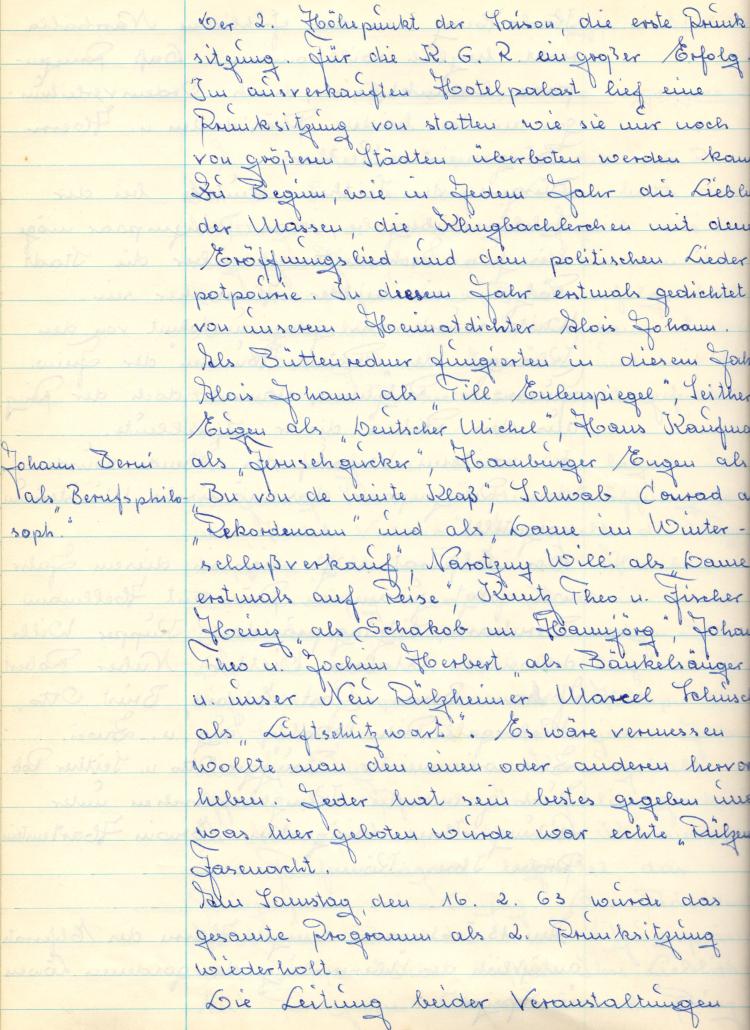 Der 2. Höhepunkt der Saison, die erste Prunk
sitzung. Für die K. G. R. ein großer Erfolg.
Im ausverkauften Hotelpalast lief eine
Prunksitzung von statten wie sie nur noch
von größeren Städten überboten werden kann
Zu Beginn, wie in jedem Jahr die Liebl
der Massen, die Klingbachlerchen mit dem
Eröffnungslied und dem politischen Lieder
potpourie. In diesem Jahr erstmals gedichtet
von unserem Heimatdichter Alois Johann.
Als Büttenredner fungierten in diesem Jah
Alois Johann als "Till Eulenspiegel", Seither
Eugen als "Deutscher Michel", Hans Kaufma
als "Fernschgucker", Hamburger Eugen als
"Bu von de neinte Klaß", Schwab Conrad a
"Rekordemann" und als "Dame im Winter-
schlußverkauf", Narotzny Willi als "Dame
erstmals auf Reise", Kuntz Theo u. Fischer
Heinz "als Schakob un Hannjörg", Johan
Theo u. Jochim Herbert "als Bänkelsänger
u. unser Neu Rülzheimer Marcel Schusch
als "Luftschutzwart". Es wäre vermessen
wollte man den einen oder anderen hervor
heben. Jeder hat sein bestes gegeben und
was hier geboten wurde war echte "Rülzem
Fasenacht.
Am Samstag, den 16. 2. 63 wurde das
gesamte Programm als 2. Prunksitzung
wiederholt.
Die Leitung beider Veranstaltungen
Johann Berni
als "Berufsphilo-
soph."